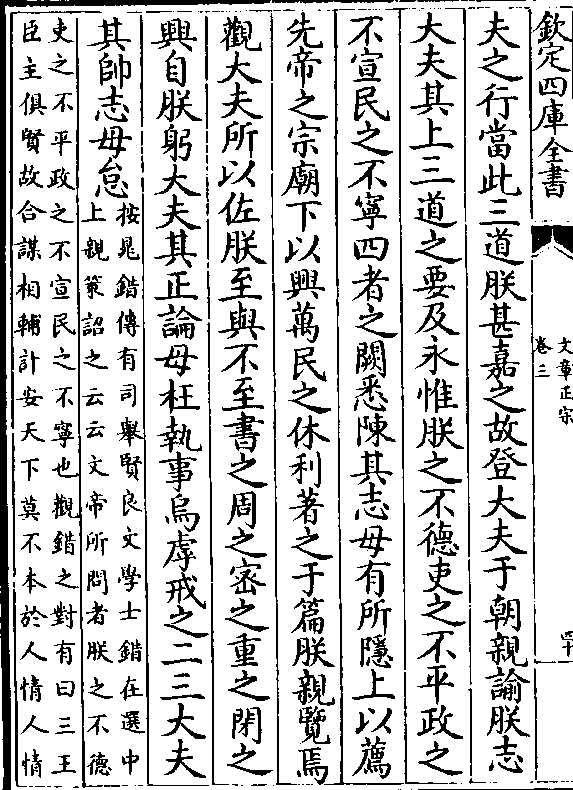 欽定四庫全書
文章正宗
卷三
四十
夫之行當此三道朕甚嘉之故登大夫于朝親諭朕志
大夫其上三道之要及永惟朕之不德吏之不平政之
不宣民之不寧四者之闕悉陳其志毋有所隱上以薦
先帝之宗廟下以興萬民之休利著之于篇朕親覽焉
觀大夫所以佐朕至與不至書之周之宻之重之閉之
興自朕躬大夫其正論毋枉執事烏虖戒之二三大夫
其帥志毋怠
按晁錯傳有司舉賢良文學士錯在選中
上親策詔之云云文帝所問者朕之不德
吏之不平政之不宣民之不寧也觀錯之對有曰三王
臣主俱賢故合謀相輔計安天下莫不本於人情人情